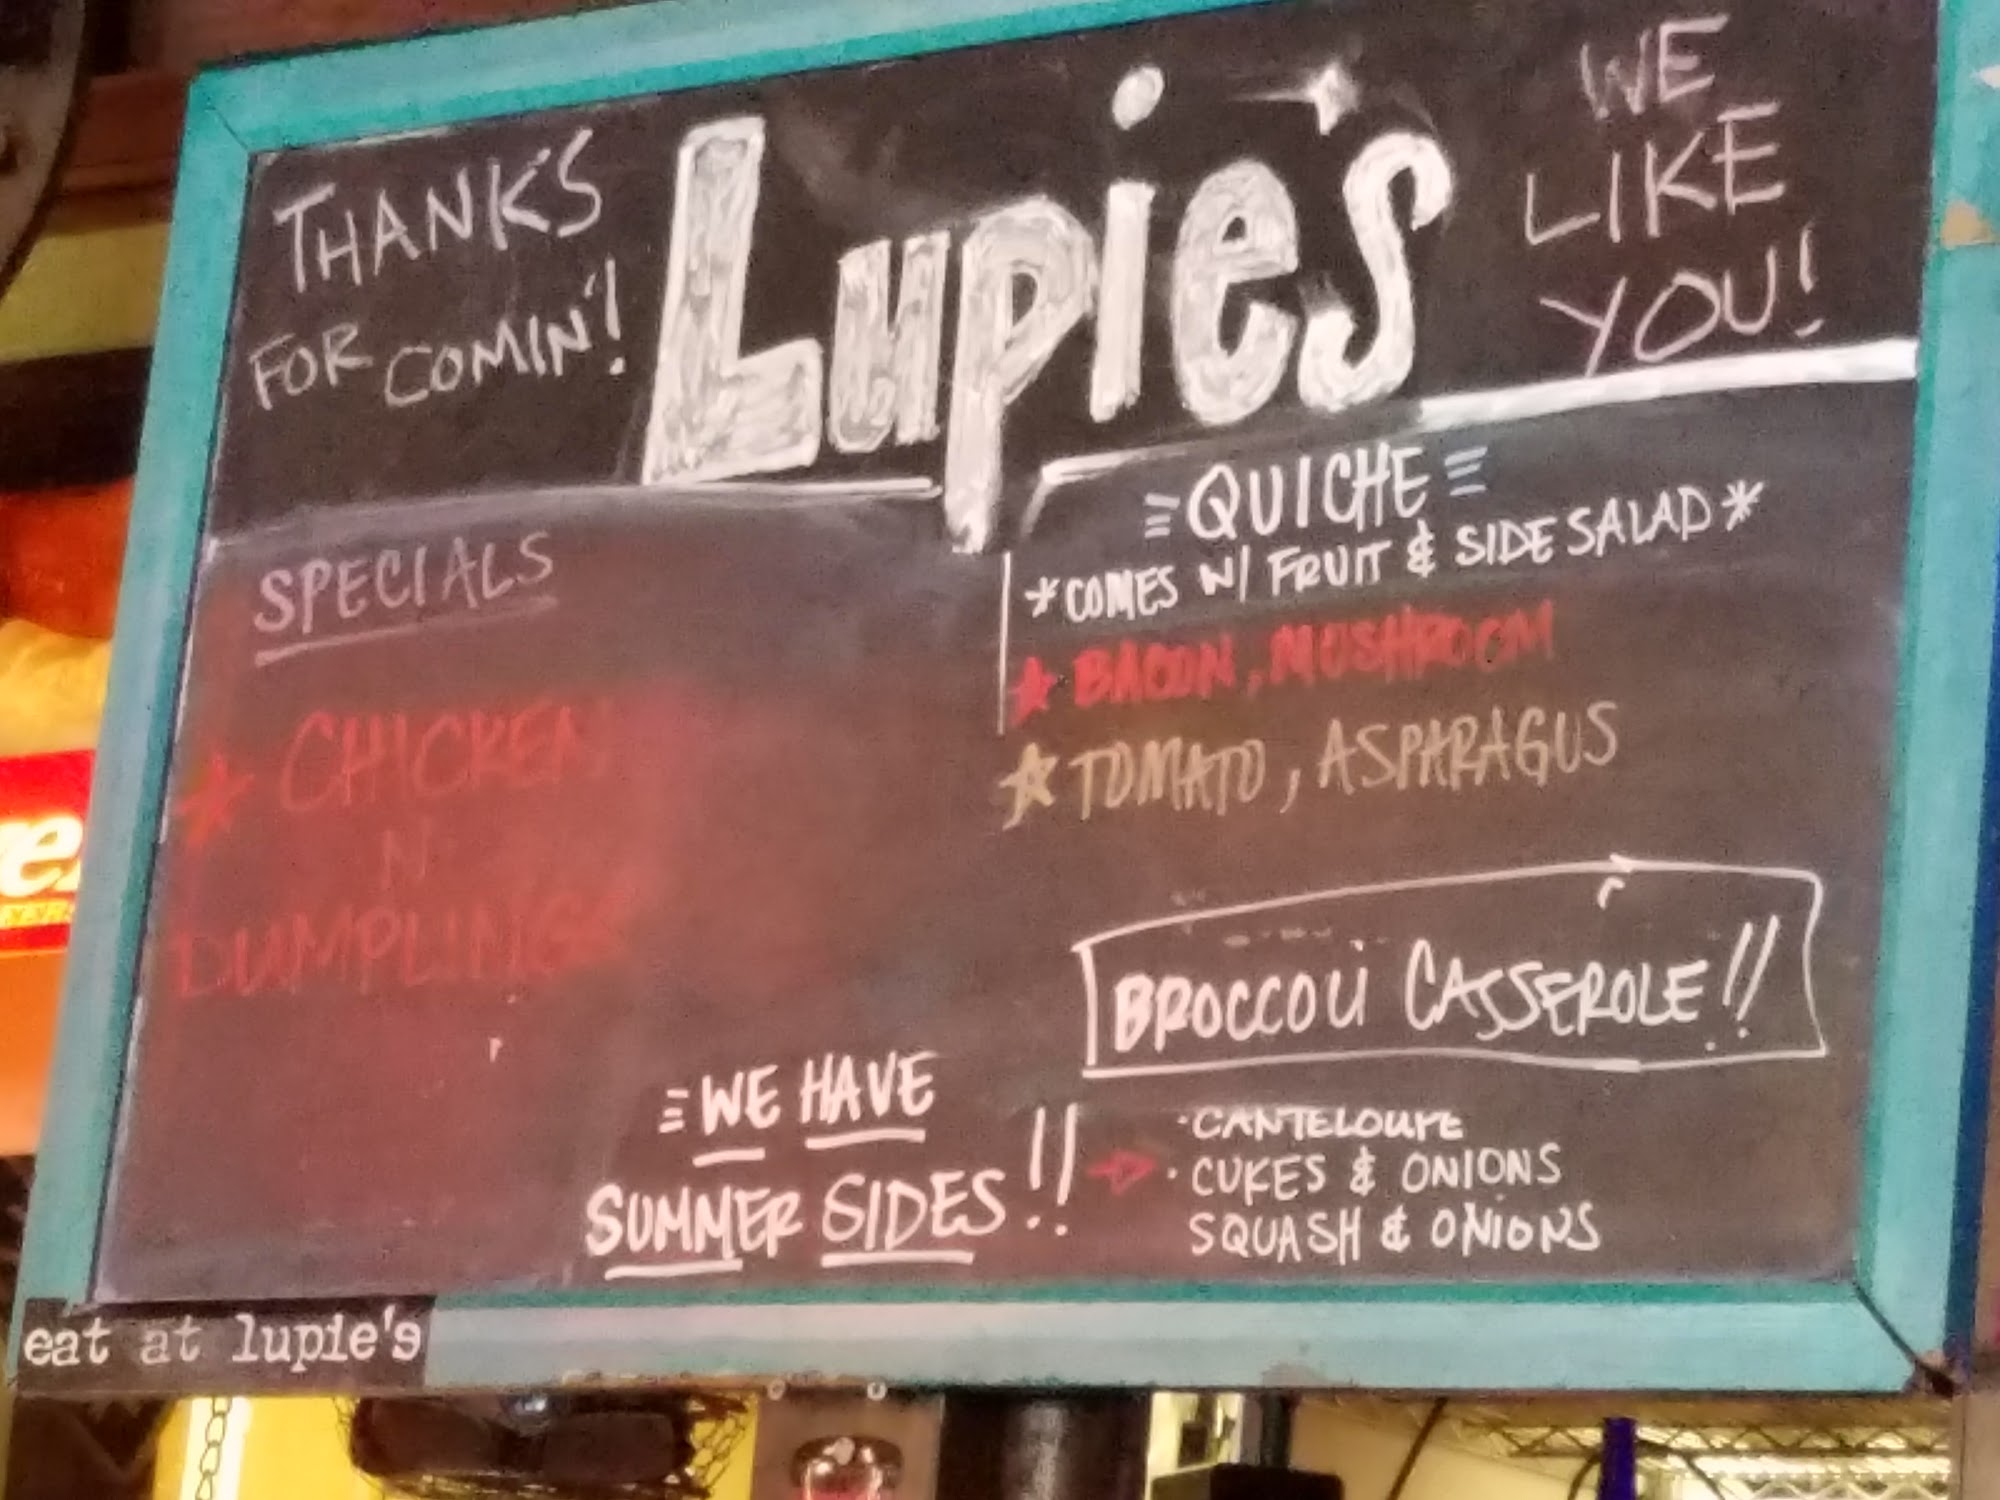 THANKS
FOR COMIN'!
Lupie's
WE
LIKE
YOU!
SPECIALS
★ CHICKEN
N
DUMPLINGS
QUICHE
*COMES W/ FRUIT & SIDE SALAD*
★ BACON, MUSHROOM
★ TOMATO, ASPARAGUS
BROCCOLI CASSEROLE!!
WE HAVE
SUMMER SIDES!!
· CANTELOUPE
· CUKES & ONIONS
SQUASH & ONIONS
eat at lupie's